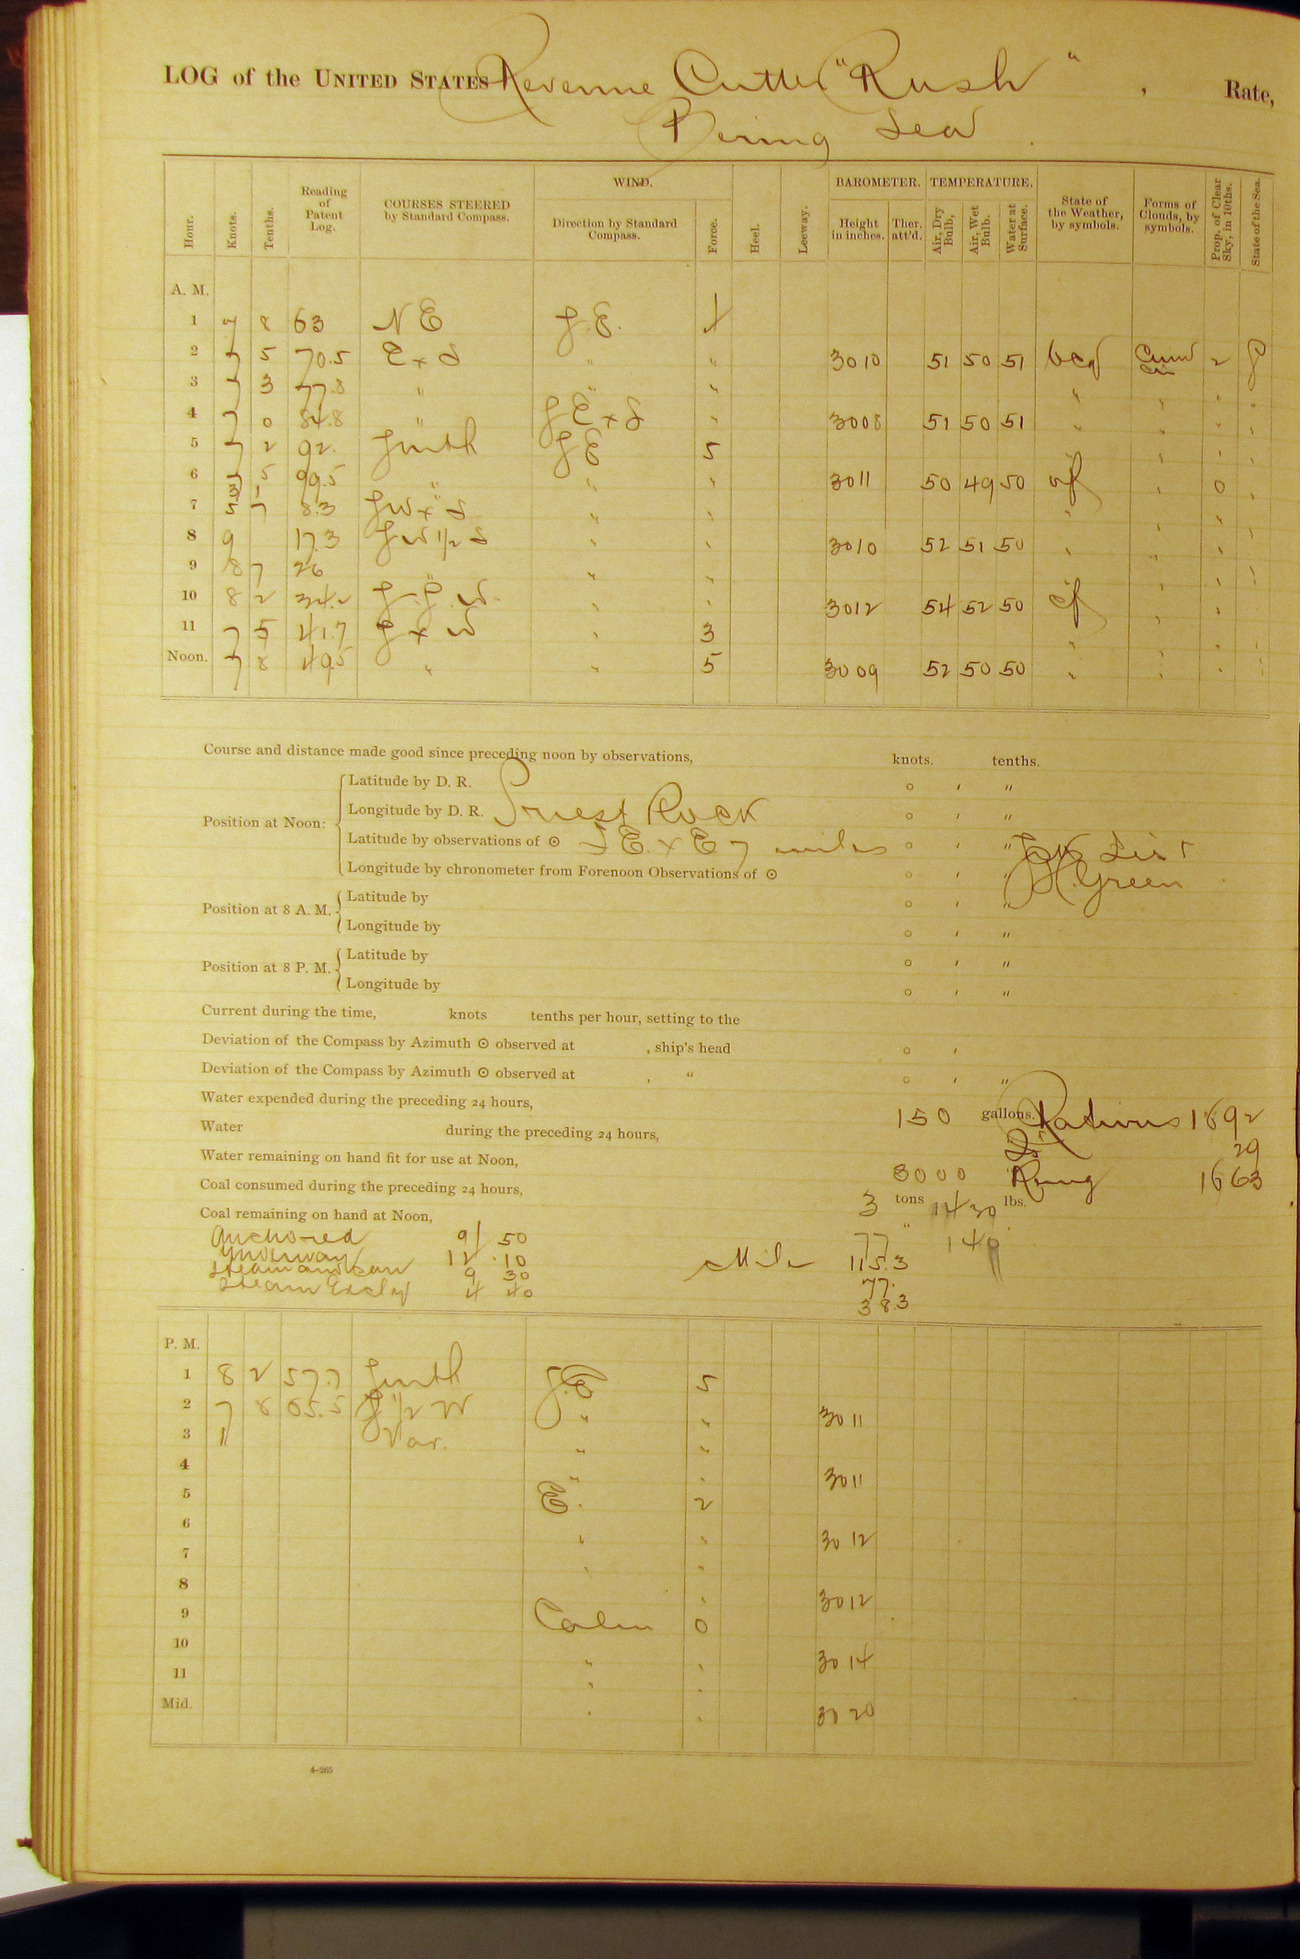 LOG of the UNITED STATES Revenue Cutter "Rush", Rate,
Bering Sea
Hour. Knots. Tenths. Reading of Patent Log. COURSES STEERED by Standard Compass. WIND. Direction by Standard Compass. Force. Heel. Leeway. BAROMETER. Height in inches. Ther. att'd. TEMPERATURE. Air, Dry Bulb, Air, Wet Bulb. Water at Surface. State of the Weather, by symbols. Forms of Clouds, by symbols. Prop. of Clear Sky, in 10ths. State of the Sea.
A. M.
1 7 8 63 N E S.E. 4
2 7 5 70.5 E x S " " 30 10 51 50 51 bcf 2 S
3 7 3 77.8 " " " " " " "
4 7 0 84.8 " SE x S " 30 08 51 50 51 " " " "
5 7 2 92. South SE 5 " " " "
6 7 5 99.5 " " " 30 11 50 49 50 of " 0 "
7 5 7 8.3 SW x S " " " " " "
8 9 17.3 SW 1/2 S " " 30 10 52 51 50 " " " "
9 8 7 26 " " " " " " "
10 8 2 34.2 S.S.W. " " 30 12 54 52 50 cf " "
11 7 5 41.7 S x W " 3 " " " "
Noon. 7 8 49.5 " " 5 30 09 52 50 50 " " " "
Course and distance made good since preceding noon by observations, knots. tenths.
Position at Noon: Latitude by D. R. ° ′ ″
Longitude by D. R. Priest Rock ° ′ ″
Latitude by observations of ⊙ SE. x E 7 miles ° ′ ″ Sick List
Longitude by chronometer from Forenoon Observations of ⊙ ° ′ ″ H. Green
Position at 8 A. M. Latitude by ° ′ ″
Longitude by ° ′ ″
Position at 8 P. M. Latitude by ° ′ ″
Longitude by ° ′ ″
Current during the time, knots tenths per hour, setting to the
Deviation of the Compass by Azimuth ⊙ observed at , ship's head ° ′
Deviation of the Compass by Azimuth ⊙ observed at , " ° ′ ″
Water expended during the preceding 24 hours, 150 gallons. Rations 1692
Water during the preceding 24 hours, 29
Water remaining on hand fit for use at Noon, 3000 " Remg 1663
Coal consumed during the preceding 24 hours, 3 tons 1430 lbs.
Coal remaining on hand at Noon, 77 " 140
Anchored 9 50
Underway 12 10 Miles 115.3
Steam and Sail 9 30 77.
Steam Exclsy 4 40 38.3
P. M.
1 8 2 57.7 South S.E 5
2 7 8 65.5 S 1/2 W " " 30 11
3 11 Var. " "
4 " " 30 11
5 E. 2
6 " " 30 12
7 " "
8 " 30 12
9 Calm 0
10 " " 30 14
11 " "
Mid. " " 30 20
4–265